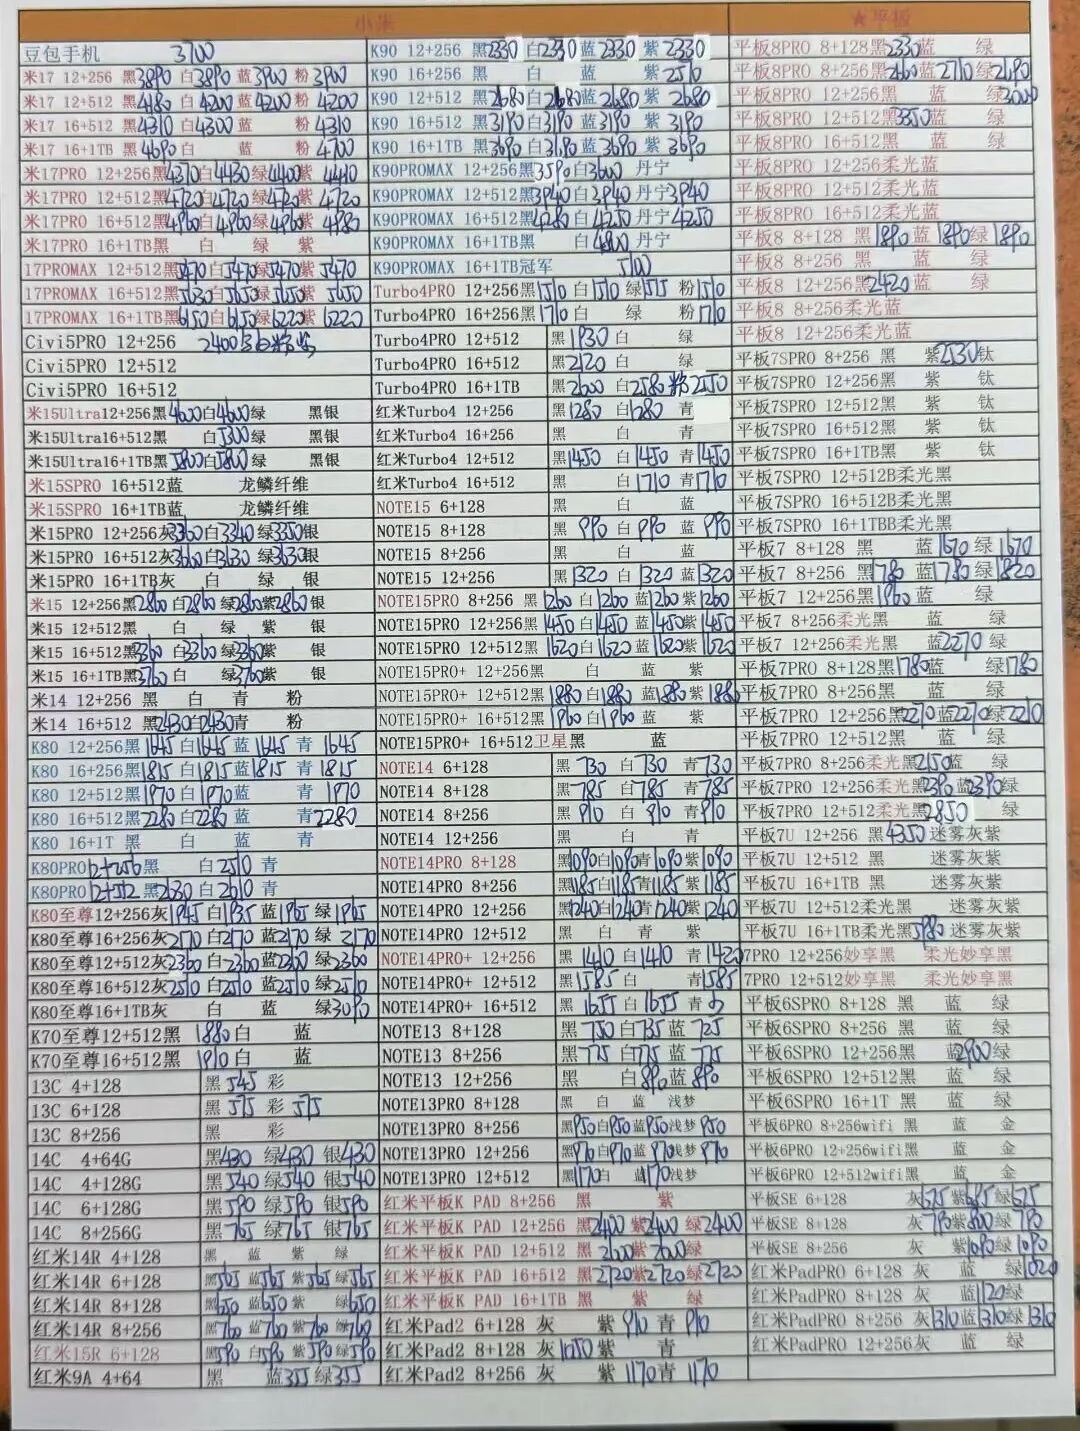 小米
豆包手机 3700
米17 12+256 黑3890 白3890 蓝3900 粉3900
米17 12+512 黑4180 白4200 蓝4200 粉4200
米17 16+512 黑4310 白4300 蓝 粉4310
米17 16+1TB 黑4690 白 蓝 粉4700
米17PRO 12+256黑4370白4430绿4400紫4410
米17PRO 12+512黑4720白4720绿4720紫4720
米17PRO 16+512黑4960白4960绿4960紫4980
米17PRO 16+1TB黑 白 绿 紫
17PROMAX 12+512黑5470白5470绿5470紫5470
17PROMAX 16+512黑5630白5650绿5650紫5650
17PROMAX 16+1TB黑6150白6150绿6220紫6220
Civi5PRO 12+256 2400
Civi5PRO 12+512
Civi5PRO 16+512
米15Ultra12+256黑4600白4600绿 黑银
米15Ultra16+512黑 白5300绿 黑银
米15Ultra16+1TB黑5800白5800绿 黑银
米15SPRO 16+512蓝 龙鳞纤维
米15SPRO 16+1TB蓝 龙鳞纤维
米15PRO 12+256灰3360白3340绿3350银
米15PRO 16+512灰3660白3630绿3630银
米15PRO 16+1TB灰 白 绿 银
米15 12+256黑2860白2860绿2860紫2860银
米15 12+512黑 白 绿 紫 银
米15 16+512黑3360白3360绿3360紫 银
米15 16+1TB黑3760白 绿3760紫 银
米14 12+256 黑 白 青 粉
米14 16+512 黑2430白2430青 粉
K80 12+256黑1645白1645蓝1645青1645
K80 16+256黑1815白1815蓝1815青1815
K80 12+512黑1970白1970蓝 青1970
K80 16+512黑2280白2280蓝 青2280
K80 16+1T 黑 白 蓝 青
K80PRO12+256黑 白2510青
K80PRO12+512黑2630白2610青
K80至尊12+256灰1945白1935蓝1965绿1965
K80至尊16+256灰2170白2170蓝2170绿2170
K80至尊12+512灰2360白2360蓝2360绿2360
K80至尊16+512灰2510白2510蓝2510绿2510
K80至尊16+1TB灰 白 蓝 绿3090
K70至尊12+512黑 1880白 蓝
K70至尊16+512黑 1910白 蓝
13C 4+128 黑545彩
13C 6+128 黑575彩575
13C 8+256 黑 彩
14C 4+64G 黑430绿430银430
14C 4+128G 黑540绿540银540
14C 6+128G 黑590绿590银590
14C 8+256G 黑765绿765银765
红米14R 4+128 黑 蓝 紫 绿
红米14R 6+128 黑565蓝565紫565绿565
红米14R 8+128 黑650蓝650紫 绿650
红米14R 8+256 黑760蓝760紫760绿760
红米15R 6+128 黑590白590紫590绿590
红米9A 4+64 黑 蓝355绿355
K90 12+256 黑2330白2330蓝2330紫2330
K90 16+256 黑 白 蓝 紫2510
K90 12+512 黑2680白2680蓝2680紫2680
K90 16+512 黑3190白3190蓝3190紫3190
K90 16+1TB 黑3690白3690蓝3690紫3690
K90PROMAX 12+256黑3590白3600丹宁
K90PROMAX 12+512黑3940白3940丹宁3940
K90PROMAX 16+512黑4280白4250丹宁4250
K90PROMAX 16+1TB黑 白4800丹宁
K90PROMAX 16+1TB冠军 5100
Turbo4PRO 12+256黑1510白1510绿1515粉1510
Turbo4PRO 16+256黑1710白 绿 粉1710
Turbo4PRO 12+512 黑1930白 绿
Turbo4PRO 16+512 黑2120白 绿
Turbo4PRO 16+1TB 黑2600白2580粉2550
红米Turbo4 12+256 黑1280白1280青
红米Turbo4 16+256 黑 白 青
红米Turbo4 12+512 黑1450白1450青1450
红米Turbo4 16+512 黑 白1710青1710
NOTE15 6+128 黑 白 蓝
NOTE15 8+128 黑990白990蓝990
NOTE15 8+256 黑 白 蓝
NOTE15 12+256 黑1320白1320蓝1320
NOTE15PRO 8+256 黑1260白1260蓝1260紫1260
NOTE15PRO 12+256黑1450白1450蓝1450紫1450
NOTE15PRO 12+512黑1620白1620蓝1620紫1620
NOTE15PRO+ 12+256黑 白 蓝 紫
NOTE15PRO+ 12+512黑1880白1880蓝1880紫1880
NOTE15PRO+ 16+512黑1960白1960蓝 紫
NOTE15PRO+ 16+512卫星黑 蓝
NOTE14 6+128 黑730白730青730
NOTE14 8+128 黑785白785青785
NOTE14 8+256 黑910白910青910
NOTE14 12+256 黑 白 青
NOTE14PRO 8+128 黑1090白1090青1090紫1090
NOTE14PRO 8+256 黑1185白1185青1185紫1185
NOTE14PRO 12+256 黑1240白1240青1240紫1240
NOTE14PRO 12+512 黑 白 青 紫
NOTE14PRO+ 12+256 黑1410白1410青1420
NOTE14PRO+ 12+512 黑1585白 青1585
NOTE14PRO+ 16+512 黑1655白1655青
NOTE13 8+128 黑750白735蓝725
NOTE13 8+256 黑775白775蓝775
NOTE13 12+256 黑 白890蓝890
NOTE13PRO 8+128 黑 白 蓝 浅梦
NOTE13PRO 8+256 黑950白950蓝950浅梦950
NOTE13PRO 12+256 黑970白970蓝970浅梦970
NOTE13PRO 12+512 黑1170白 蓝1170浅梦
红米平板K PAD 8+256 黑 紫
红米平板K PAD 12+256 黑2400紫2400绿2400
红米平板K PAD 12+512 黑2600紫2600绿
红米平板K PAD 16+512 黑2720紫2720绿2720
红米平板K PAD 16+1TB 黑 紫 绿
红米Pad2 6+128 灰 紫910青910
红米Pad2 8+128 灰1050紫 青
红米Pad2 8+256 灰 紫1170青1170
★平板
平板8PRO 8+128黑2330蓝 绿
平板8PRO 8+256黑2660蓝2710绿2690
平板8PRO 12+256黑 蓝 绿
平板8PRO 12+512黑3350蓝 绿
平板8PRO 16+512黑 蓝 绿
平板8PRO 12+256柔光蓝
平板8PRO 12+512柔光蓝
平板8PRO 16+512柔光蓝
平板8 8+128 黑1890蓝1890绿1890
平板8 8+256 黑 蓝 绿
平板8 12+256黑2420蓝 绿
平板8 8+256柔光蓝
平板8 12+256柔光蓝
平板7SPRO 8+256 黑 紫2530钛
平板7SPRO 12+256黑 紫 钛
平板7SPRO 12+512黑 紫 钛
平板7SPRO 16+512黑 紫 钛
平板7SPRO 16+1TB黑 紫 钛
平板7SPRO 12+512B柔光黑
平板7SPRO 16+512B柔光黑
平板7SPRO 16+1TBB柔光黑
平板7 8+128 黑 蓝1670绿1670
平板7 8+256 黑1780蓝1780绿1820
平板7 12+256黑1960蓝 绿
平板7 8+256柔光黑 蓝 绿
平板7 12+256柔光黑 蓝2270绿
平板7PRO 8+128黑1780蓝 绿1780
平板7PRO 8+256黑 蓝 绿
平板7PRO 12+256黑2270蓝2270绿2210
平板7PRO 12+512黑 蓝 绿
平板7PRO 8+256柔光黑2150蓝 绿
平板7PRO 12+256柔光黑2390蓝2390绿
平板7PRO 12+512柔光黑2850 绿
平板7U 12+256 黑4350迷雾灰紫
平板7U 12+512 黑 迷雾灰紫
平板7U 16+1TB 黑 迷雾灰紫
平板7U 12+512柔光黑 迷雾灰紫
平板7U 16+1TB柔光黑5980迷雾灰紫
7PRO 12+256妙享黑 柔光妙享黑
7PRO 12+512妙享黑 柔光妙享黑
平板6SPRO 8+128 黑 蓝 绿
平板6SPRO 8+256 黑 蓝 绿
平板6SPRO 12+256黑 蓝2900绿
平板6SPRO 12+512黑 蓝 绿
平板6SPRO 16+1T 黑 蓝 绿
平板6PRO 8+256wifi 黑 蓝 金
平板6PRO 12+256wifi黑 蓝 金
平板6PRO 12+512wifi黑 蓝 金
平板SE 6+128 灰675紫685绿675
平板SE 8+128 灰790紫800绿790
平板SE 8+256 灰 紫1090绿1090
红米PadPRO 6+128 灰 蓝 绿1020
红米PadPRO 8+128 灰 蓝1120绿
红米PadPRO 8+256 灰1310蓝1310绿1310
红米PadPRO 12+256灰 蓝 绿